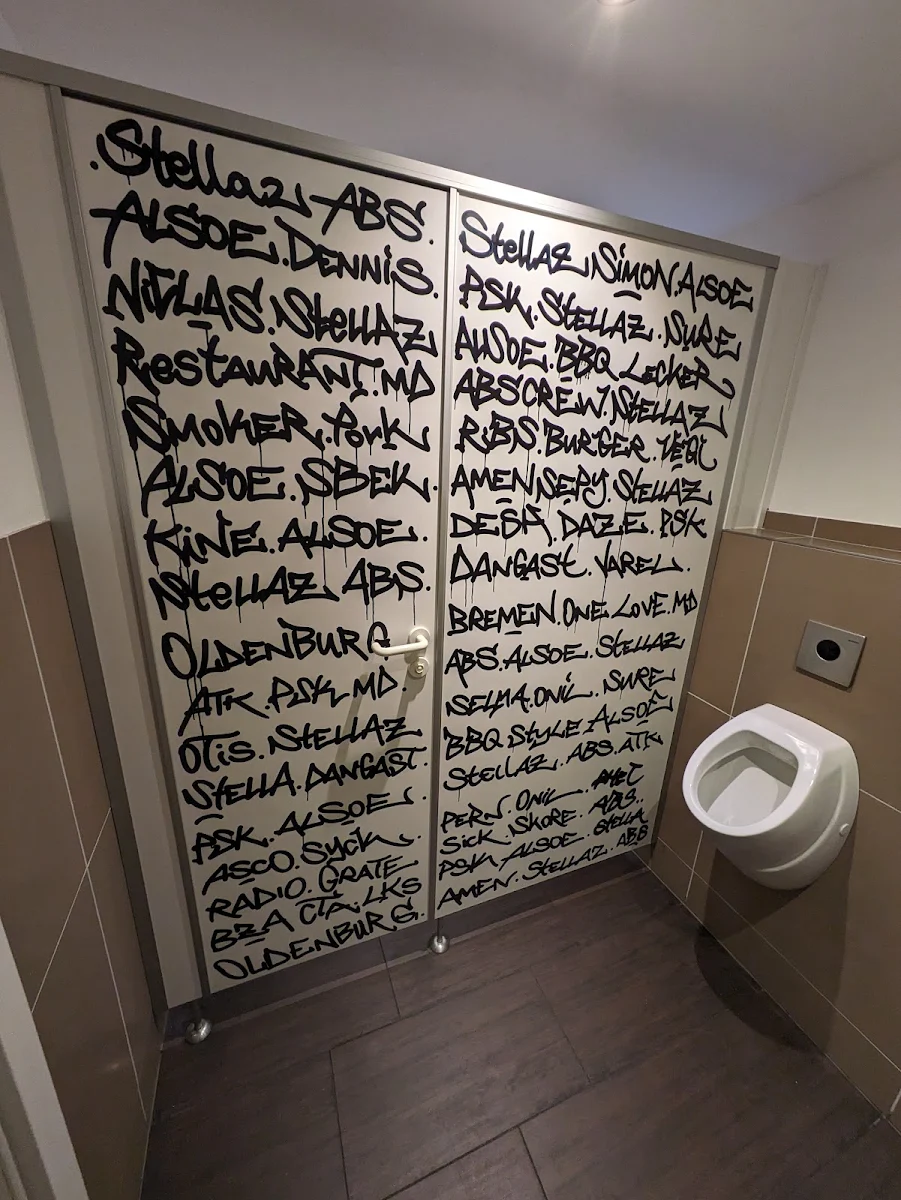 .Stellaz ABS.
ALSOE.DENNIS.
NiCLAS.StellAZ
RestAURANT.MD
SMOKER.PORK
ALSOE.SBEK.
KiNE.ALSOE.
StellAZ ABS.
OLDENBURG
ATK.PSK.MD.
OTis.StELLAZ
StELLA.DANGAST.
PSK.ALSOE.
ASCO.SyCK
RADIO.GRATE
BZA CTA.LKS
OLDENBURG.
StellAZ.SiMON.ALSOE
PSK.StELLAZ.SURE
ALSOE.BBQ LECKER
ABSCREW.StELLAZ
RiBS.BURGER.VEGi
AMEN.SEPY.StELLAZ
DESA.DAZE.PSK
DANGASt.VAREL.
BREMEN.ONE LOVE.MD
ABS.ALSOE.StELLAZ
ONiL.SURE
BBQ StyLE ALSOE
StELLAZ.ABS.ATK
PERN.ONiL.
SiCK.SKORE.ABS..
PSK ALSOE.StELLA
AMEN.StELLAZ.ABS